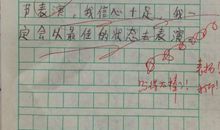 节表演，我信心十足，我一
定会以最佳的状态去表演
写得太棒了！